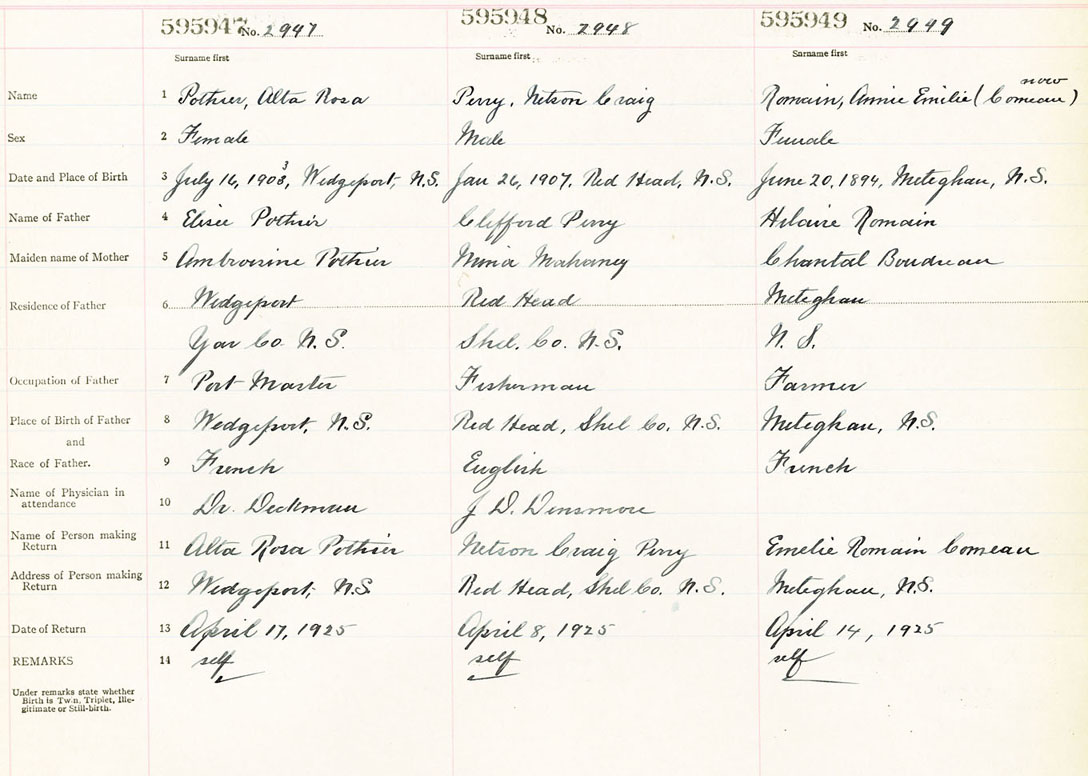 595947 No. 2947 595948 No. 2948 595949 No. 2949
Surname first Surname first Surname first
now
Name 1 Pothier, Alta Rosa Perry, Nelson Craig Romain, Annie Emilie (Comeau)
Sex 2 Female Male Female
3
Date and Place of Birth 3 July 16, 1903, Wedgeport, N.S. Jan 26, 1907, Red Head, N.S. June 20, 1894, Meteghan, N.S.
Name of Father 4 Elisée Pothier Clifford Perry Hilaire Romain
Maiden name of Mother 5 Ambroisine Pothier Mina Mahaney Chantal Boudreau
Residence of Father 6 Wedgeport Red Head Meteghan
Yar Co. N.S. Shel. Co. N.S. N.S.
Occupation of Father 7 Port Master Fisherman Farmer
Place of Birth of Father 8 Wedgeport, N.S. Red Head, Shel Co. N.S. Meteghan, N.S.
and
Race of Father. 9 French English French
Name of Physician in
attendance 10 Dr. Deckman J D. Densmore
Name of Person making
Return 11 Alta Rosa Pothier Nelson Craig Perry Emelie Romain Comeau
Address of Person making
Return 12 Wedgeport, N.S. Red Head, Shel Co. N.S. Meteghan, N.S.
Date of Return 13 April 17, 1925 April 8, 1925 April 14, 1925
REMARKS 14 self self self
Under remarks state whether
Birth is Twin, Triplet, Ille-
gitimate or Still-birth.